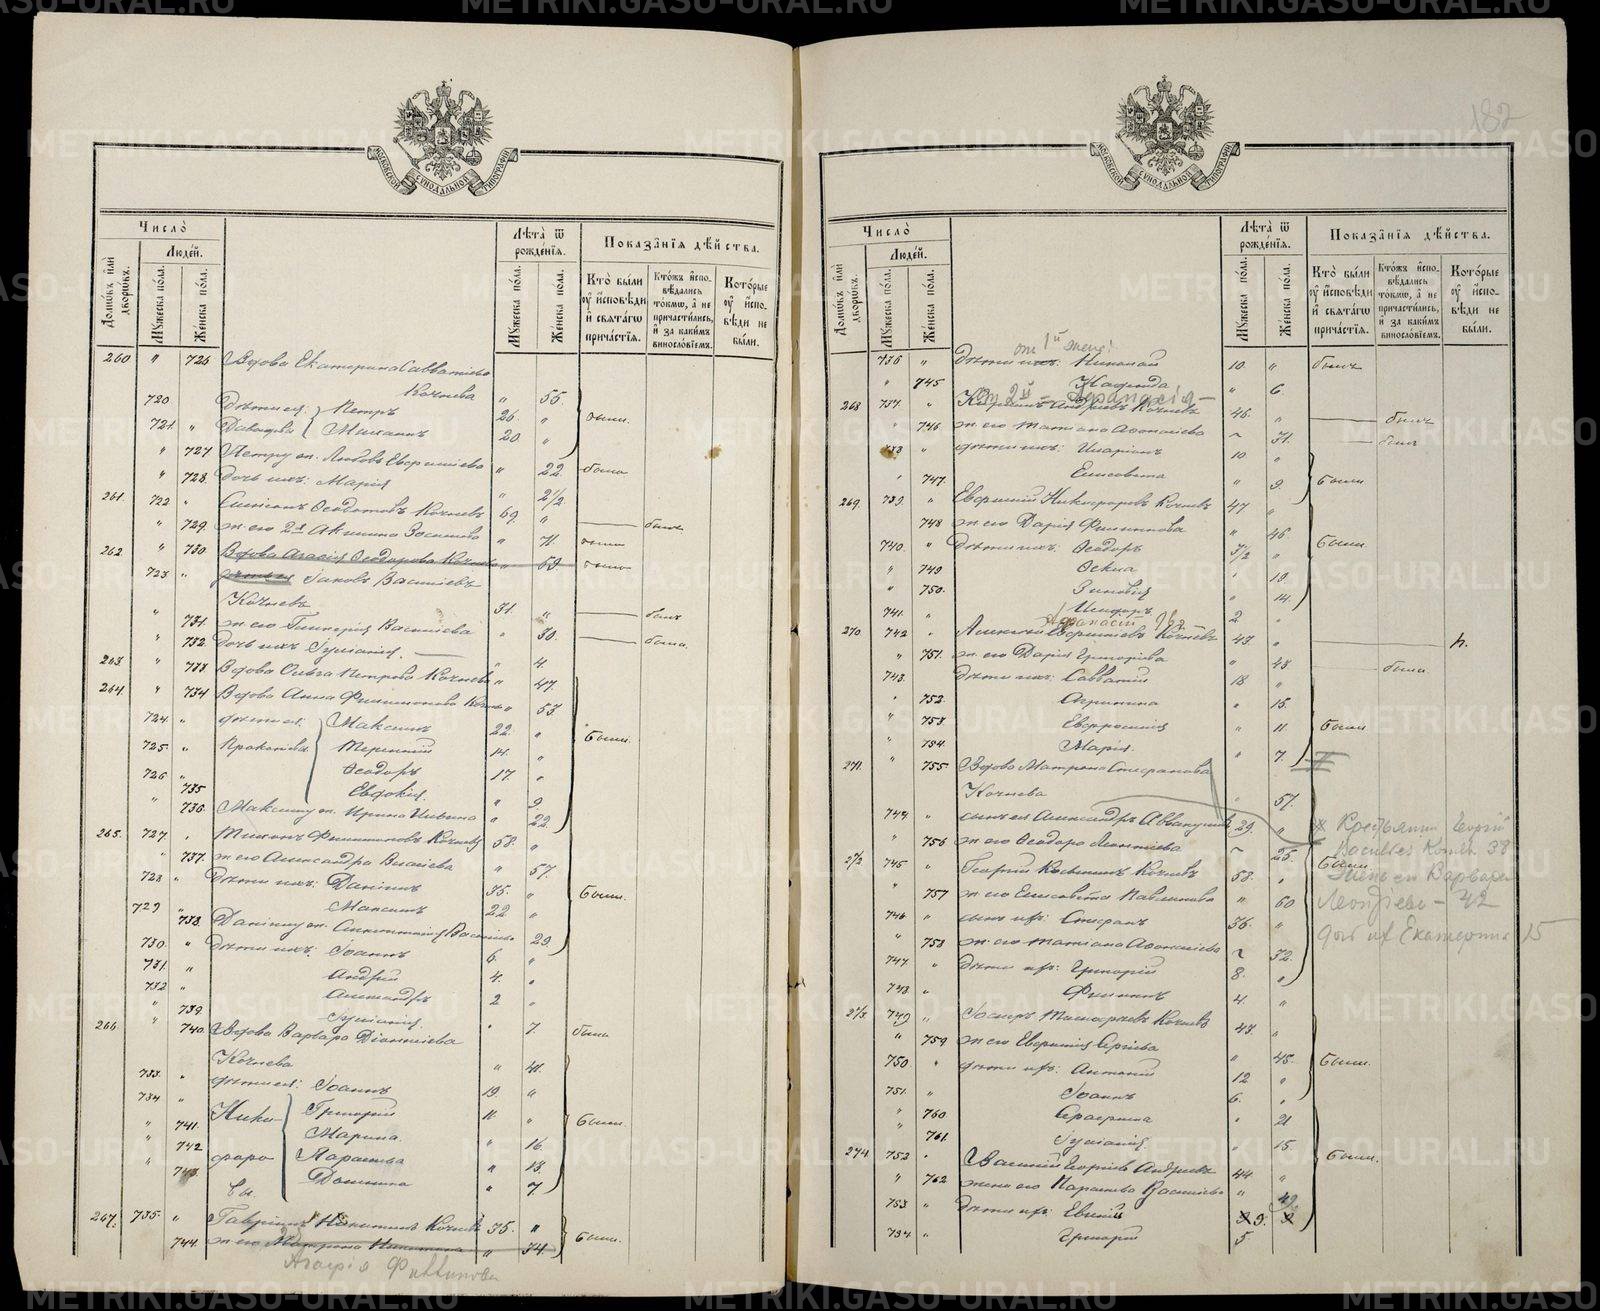 182
МОСКОВСКОЙ СѴНОДАЛЬНОЙ ТИПОГРАФІИ
Число̀
Людей.
Домѡвъ или дворѡвъ.
Мужеска пола.
Женска пола.
Лѣта ѿ рожденія.
Мужеска пола.
Женска пола.
Показанія дѣйства.
Кто были у исповѣди и святаго причастія.
Ктожъ исповѣдались токмо, а не причастились, и за какимъ винословіемъ.
Которые у исповѣди не были.
260 " 726 Вдова Екатерина Савватіева
Кочнева " 55.
720 Дѣти ея: Петръ 26 "
721 " Давидовы Михаилъ 20 " были.
" 727 Петру ж. Любовь Евфиміева " 22 была
" 728. Дочь ихъ: Марія " 2 1/2
261. 722 " Симеонъ Ѳеодотовъ Кочневъ 69. " былъ.
" 729. ж. его 2я Акилина Зосимова " 71.
262 " 730. Вдова Агафія Ѳеодорова Кочнева " 69.
723 " Іаковъ Васильевъ
Кочневъ 31. " былъ
" 731. ж. его Гликерія Васильева " 30. была.
" 732. Дочь ихъ Іуліанія. " 4.
263 " 733. Вдова Ольга Петрова Кочнева " 47.
264. " 734 Вдова Анна Филимонова Кочнева " 53
724 " дѣти ея: Максимъ 22. "
725 " Прокопьевы Терентій 14. " Были.
726 " Ѳеодоръ 17 "
735 Евдокія. " 9.
" 736. Максиму ж. Ирина Ильина " 22.
265. 727. " Тихонъ Филимоновъ Кочневъ 58. "
" 737. ж. его Александра Власіева " 57.
728 " Дѣти ихъ: Даніилъ 35. " Были.
729 " Максимъ 22 "
738. Даніилу ж. Васильева 29.
730. " Дѣти ихъ: Іоаннъ 6. "
731. " Андрей 4. "
732 " Александръ 2 "
" 739. Іуліанія.
266 " 740. Вдова Варвара Діонисіева " 7. была
Кочнева " 41.
733. " дѣти ея: Іоаннъ 19. "
734 " Нико- Григорій 11. " Были.
" 741. Марина
" 742 форо- Параскева " 16.
" 743. Домника " 13.
вы. " 7
267. 735. " Гавріилъ Никитинъ Кочневъ 35. "
744. ж. его Матрона Никитина " 34. Были.
Агафія Филиппова
Число̀
Людей.
Домѡвъ или дворѡвъ.
Мужеска пола.
Женска пола.
Лѣта ѿ рожденія.
Мужеска пола.
Женска пола.
Показанія дѣйства.
Кто были у исповѣди и святаго причастія.
Ктожъ исповѣдались токмо, а не причастились, и за какимъ винословіемъ.
Которые у исповѣди не были.
от 1й жены:
736 " Дѣти ихъ: Николай 10. " былъ
" 745 " 6.
от 2й Афанасія
268 737 " Андреевъ Кочневъ 46. " былъ
" 746 ж. его Татіана Аѳонасіева 31. была
738 " дѣти ихъ: Иларіонъ 10 "
" 747. Елисавета " 9. Были
269. 739. " Евфимій Никифоровъ Кочневъ 47 "
748 ж. его Дарія Филиппова " 46.
740. " Дѣти ихъ: Ѳеодоръ 3 1/2 " Были.
" 749 Ѳекла " 19.
" 750. Зиновія " 14.
741. " Исидоръ 2 "
Афанасій
270 742 " Евфиміевъ Кочневъ 43. " н.
" 751. ж. его Дарія Григоріева " 43 была
743. Дѣти ихъ: Савватій 18 "
" 752. Агрипина " 15.
" 753 Евфросинія " 11 Были
" 754. Марія. " 7.
271. " 755 Вдова Матрона Стефанова
Кочнева " 57.
744 " сынъ ея Александръ Аввакумовъ 29. "
" 756 ж. его Ѳеодора Леонтіева 25.
х Крестьянин Георгій
Васильев Кочн. 38
жена его Варвара
Леонтіева - 42
дочь их Екатерина 15
272 745 " Георгій Косминъ Кочневъ 58. " Были.
" 757 ж. его Елисавета Павлинова " 60
746 " сынъ их: Стефанъ 36. "
" 758 ж. его Татіана Аѳонасіева 32.
747. " Дѣти их: Григорій 8. "
748. " Филиппъ 4. "
273 749 " Кочневъ 43. "
" 759 ж. его Евфимія Сергіева " 45. Были.
750. " дѣти их: Антоній 12 "
751. " Іоаннъ 6. "
" 760. Серафима " 21
" 761. Іуліанія " 15
274 752 " Василій Георгіевъ Андреевъ 44 " Были.
" 762 жена его Параскева Васильева " 42
753 " Дѣти их: Евгеній 9.
754 " Григорій 5